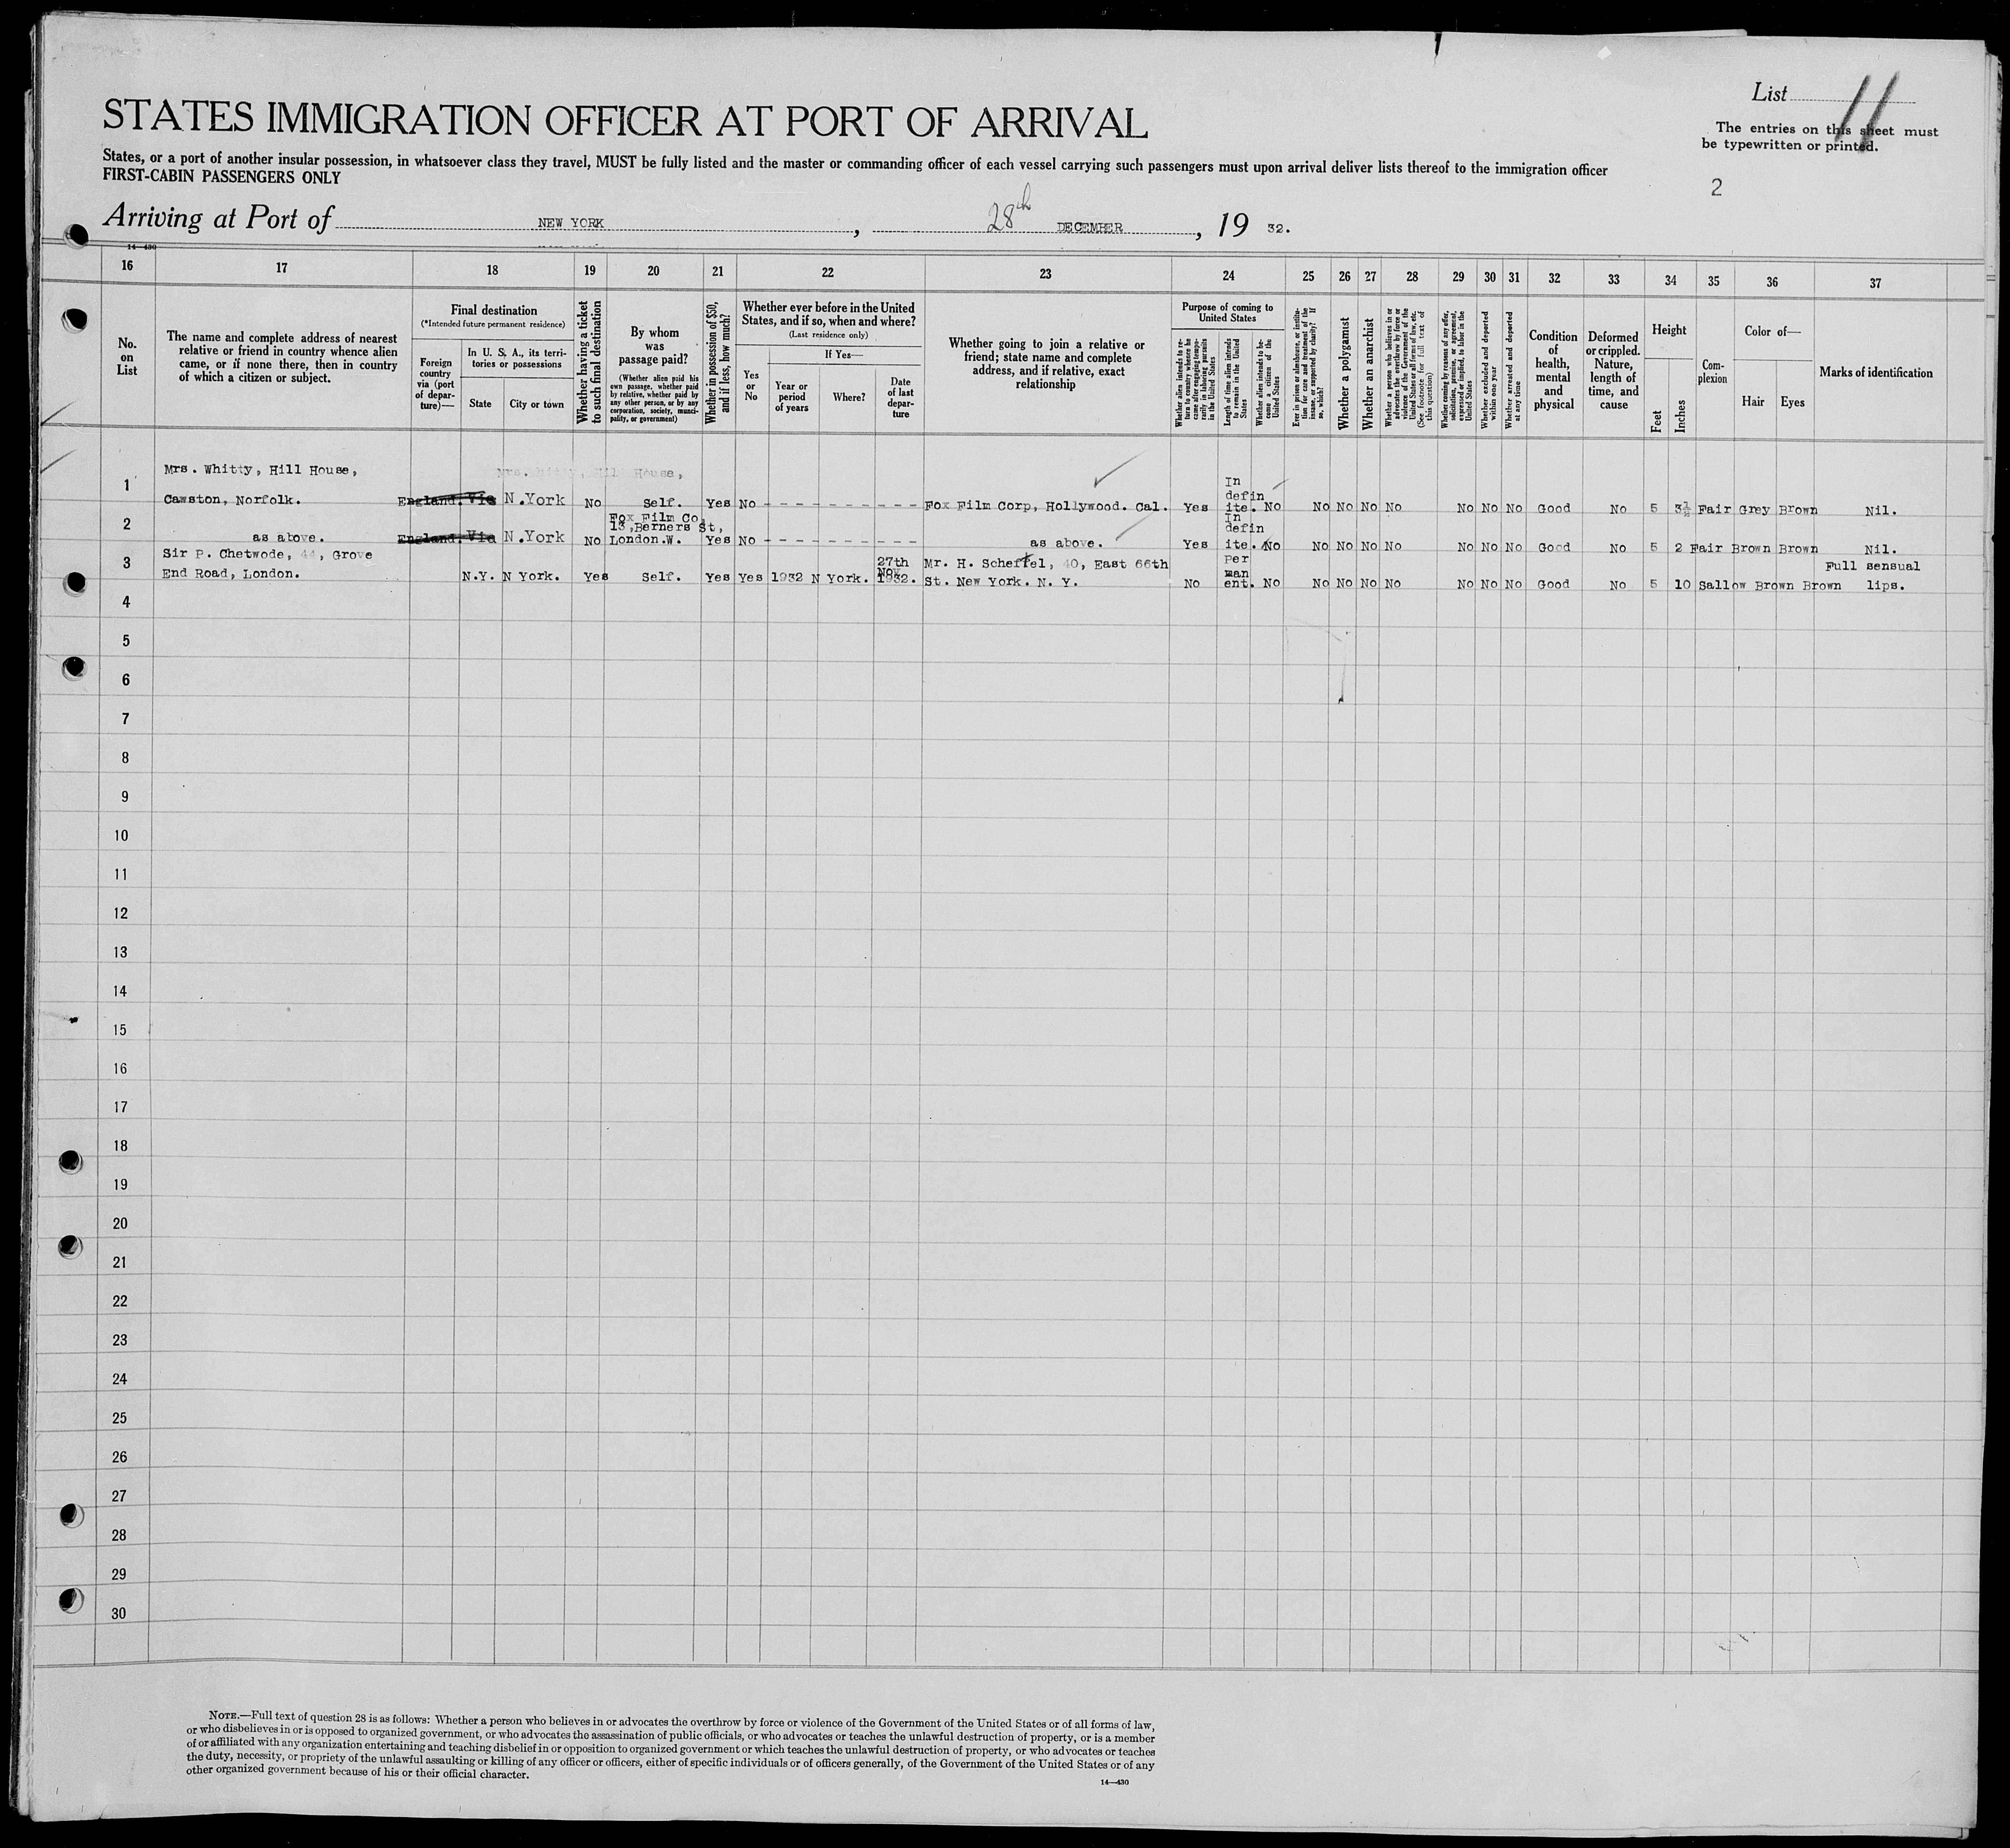 List 11
The entries on this sheet must
be typewritten or printed.
STATES IMMIGRATION OFFICER AT PORT OF ARRIVAL
States, or a port of another insular possession, in whatsoever class they travel, MUST be fully listed and the master or commanding officer of each vessel carrying such passengers must upon arrival deliver lists thereof to the immigration officer
FIRST-CABIN PASSENGERS ONLY
2
Arriving at Port of NEW YORK, 28th DECEMBER, 19 32.
14—430
16 17 18 19 20 21 22 23 24 25 26 27 28 29 30 31 32 33 34 35 36 37
No.
on
List
The name and complete address of nearest
relative or friend in country whence alien
came, or if none there, then in country
of which a citizen or subject.
Final destination
(*Intended future permanent residence)
Foreign
country
via (port
of depar-
ture)—
In U. S. A., its terri-
tories or possessions
State
City or town
Whether having a ticket
to such final destination
By whom
was
passage paid?
(Whether alien paid his
own passage, whether paid
by relative, whether paid by
any other person, or by any
corporation, society, munici-
pality, or government)
Whether in possession of $50,
and if less, how much?
Whether ever before in the United
States, and if so, when and where?
(Last residence only)
Yes
or
No
If Yes—
Year or
period
of years
Where?
Date
of last
depar-
ture
Whether going to join a relative or
friend; state name and complete
address, and if relative, exact
relationship
Purpose of coming to
United States
Whether alien intends to re-
turn to country whence he
came after engaging tempo-
rarily in laboring pursuits
in the United States
Length of time alien intends
to remain in the United
States
Whether alien intends to be-
come a citizen of the
United States
Ever in prison or almshouse, or institu-
tion for care and treatment of the
insane, or supported by charity? If
so, which?
Whether a polygamist
Whether an anarchist
Whether a person who believes in or
advocates the overthrow by force or
violence of the Government of the
United States or all forms of law, etc.
(See footnote for full text of
this question)
Whether coming by reasons of any offer,
solicitation, promise, or agreement,
expressed or implied, to labor in the
United States
Whether excluded and deported
within one year
Whether arrested and deported
at any time
Condition
of
health,
mental
and
physical
Deformed
or crippled.
Nature,
length of
time, and
cause
Height
Feet
Inches
Com-
plexion
Color of—
Hair
Eyes
Marks of identification
Mrs. Whitty, Hill House,
1
Cawston, Norfolk. England. Via N.York No Self. Yes No - - - - - - - - - Fox Film Corp, Hollywood. Cal. Yes In
defin
ite. No No No No No No No No Good No 5 3½ Fair Grey Brown Nil.
2
as above. England. Via N.York No Fox Film Co,
13, Berners St,
London.W. Yes No - - - - - - - - - as above. Yes In
defin
ite. No No No No No No No No Good No 5 2 Fair Brown Brown Nil.
3
Sir P. Chetwode, 44, Grove
End Road, London. N.Y. N York. Yes Self. Yes Yes 1932 N York. 27th
Nov
1932. Mr. H. Scheftel, 40, East 66th
St. New York. N. Y. No Per
man
ent. No No No No No No No No Good No 5 10 Sallow Brown Brown Full sensual
lips.
4
5
6
7
8
9
10
11
12
13
14
15
16
17
18
19
20
21
22
23
24
25
26
27
28
29
30
NOTE.—Full text of question 28 is as follows: Whether a person who believes in or advocates the overthrow by force or violence of the Government of the United States or of all forms of law,
or who disbelieves in or is opposed to organized government, or who advocates the assassination of public officials, or who advocates or teaches the unlawful destruction of property, or is a member
of or affiliated with any organization entertaining and teaching disbelief in or opposition to organized government or which teaches the unlawful destruction of property, or who advocates or teaches
the duty, necessity, or propriety of the unlawful assaulting or killing of any officer or officers, either of specific individuals or of officers generally, of the Government of the United States or of any
other organized government because of his or their official character.
14—430